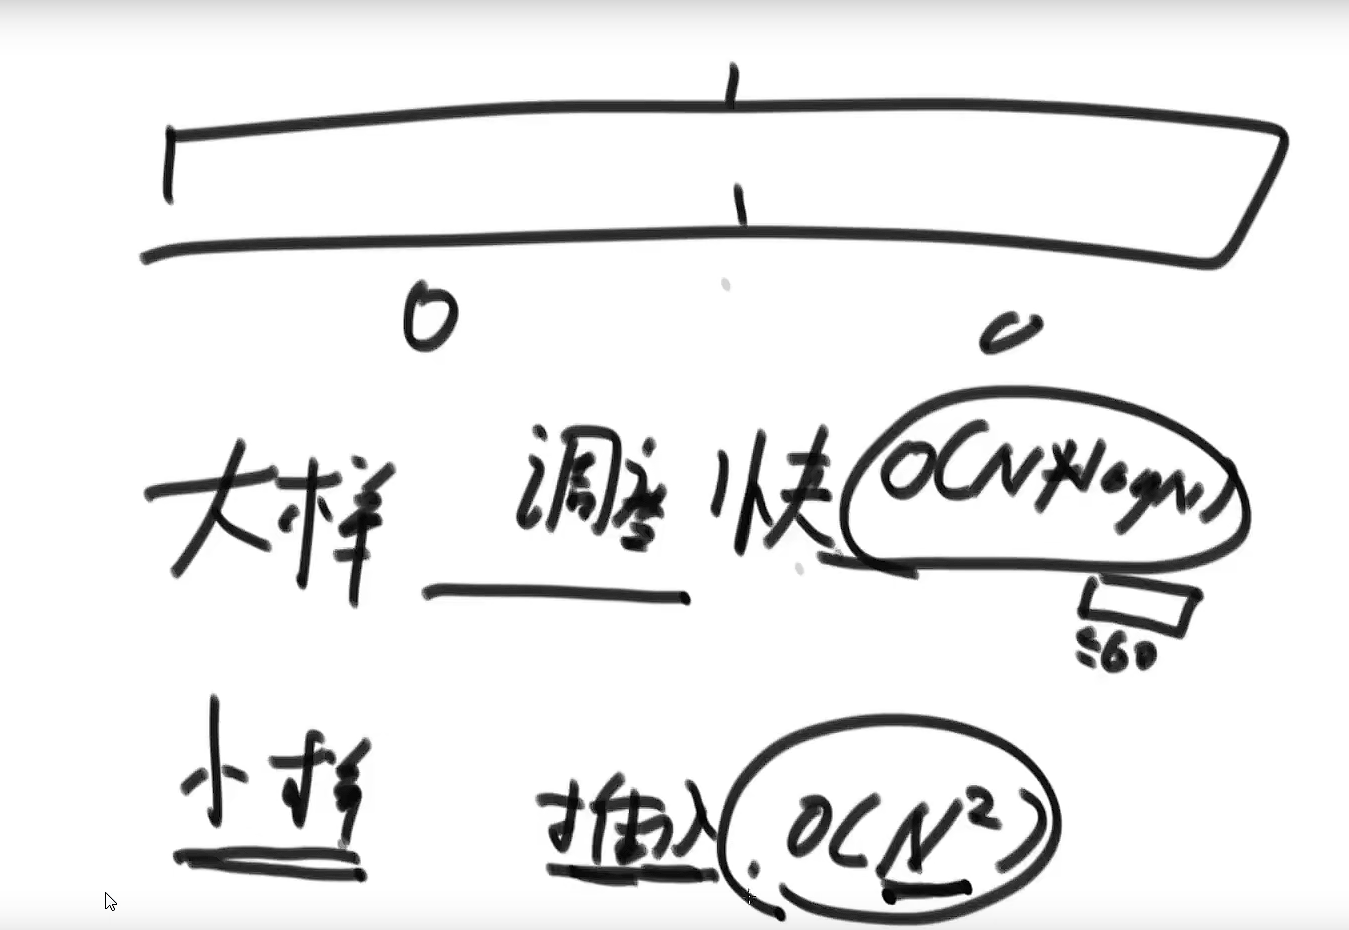 O O
大样 调度 快 O(N*logN)
≤60
小样 插入 O(N²)